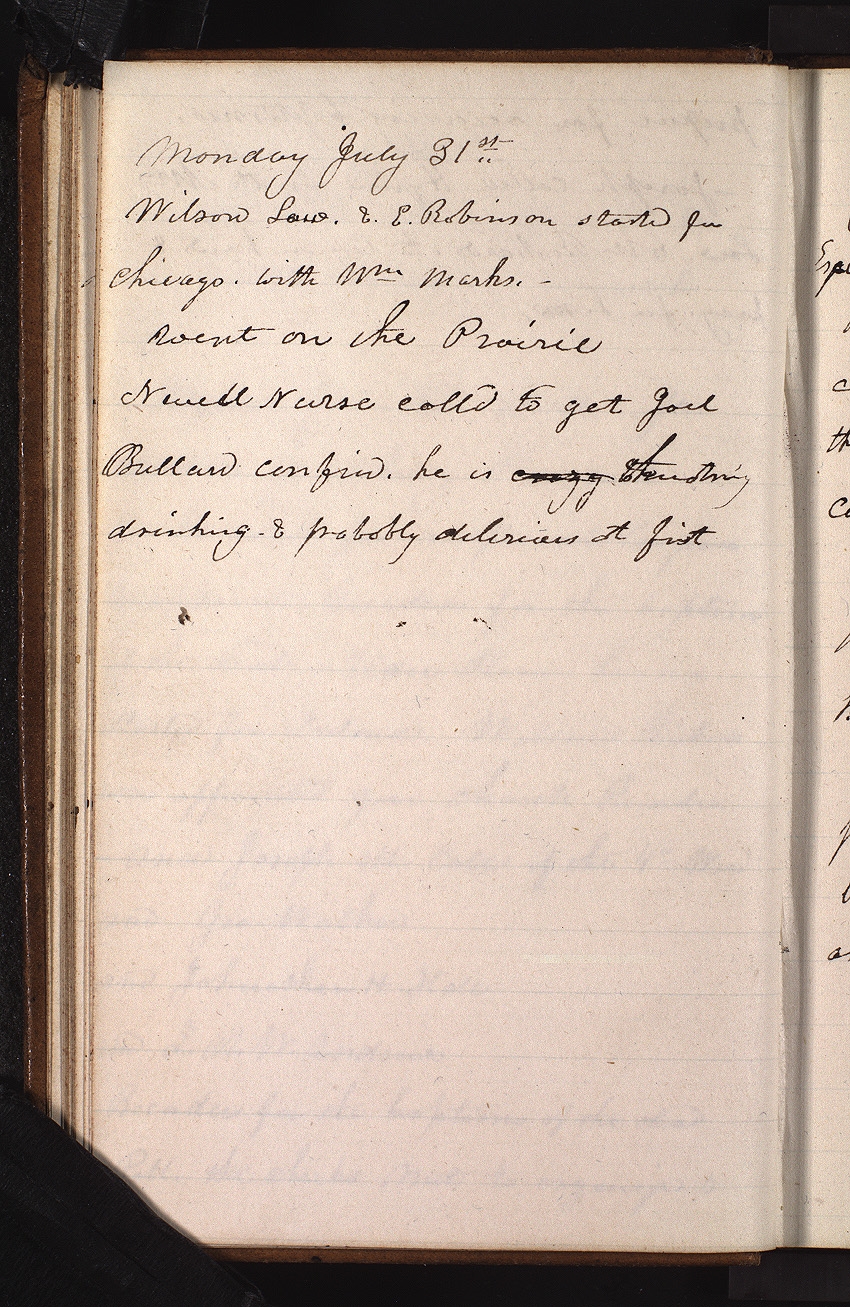 Monday July 31st
Wilson Law. & E. Robinson started for
Chicago. with Wm Marks. -
went on the Prairie
Newell Nurse calld to get Joel
Bullard confind. he is crazy
drinking. & probably delirious at first